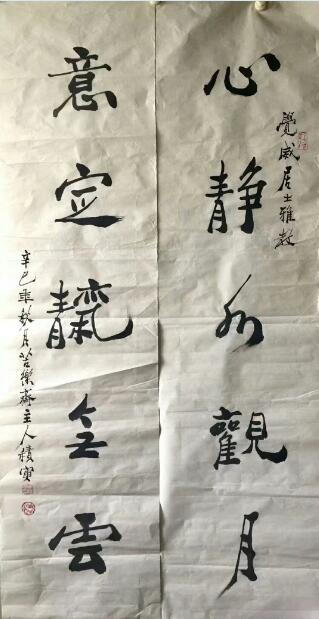 覺威居士雅教
心静水觀月
意定靝雲
辛巳年秋月苦樂齋主人積寅